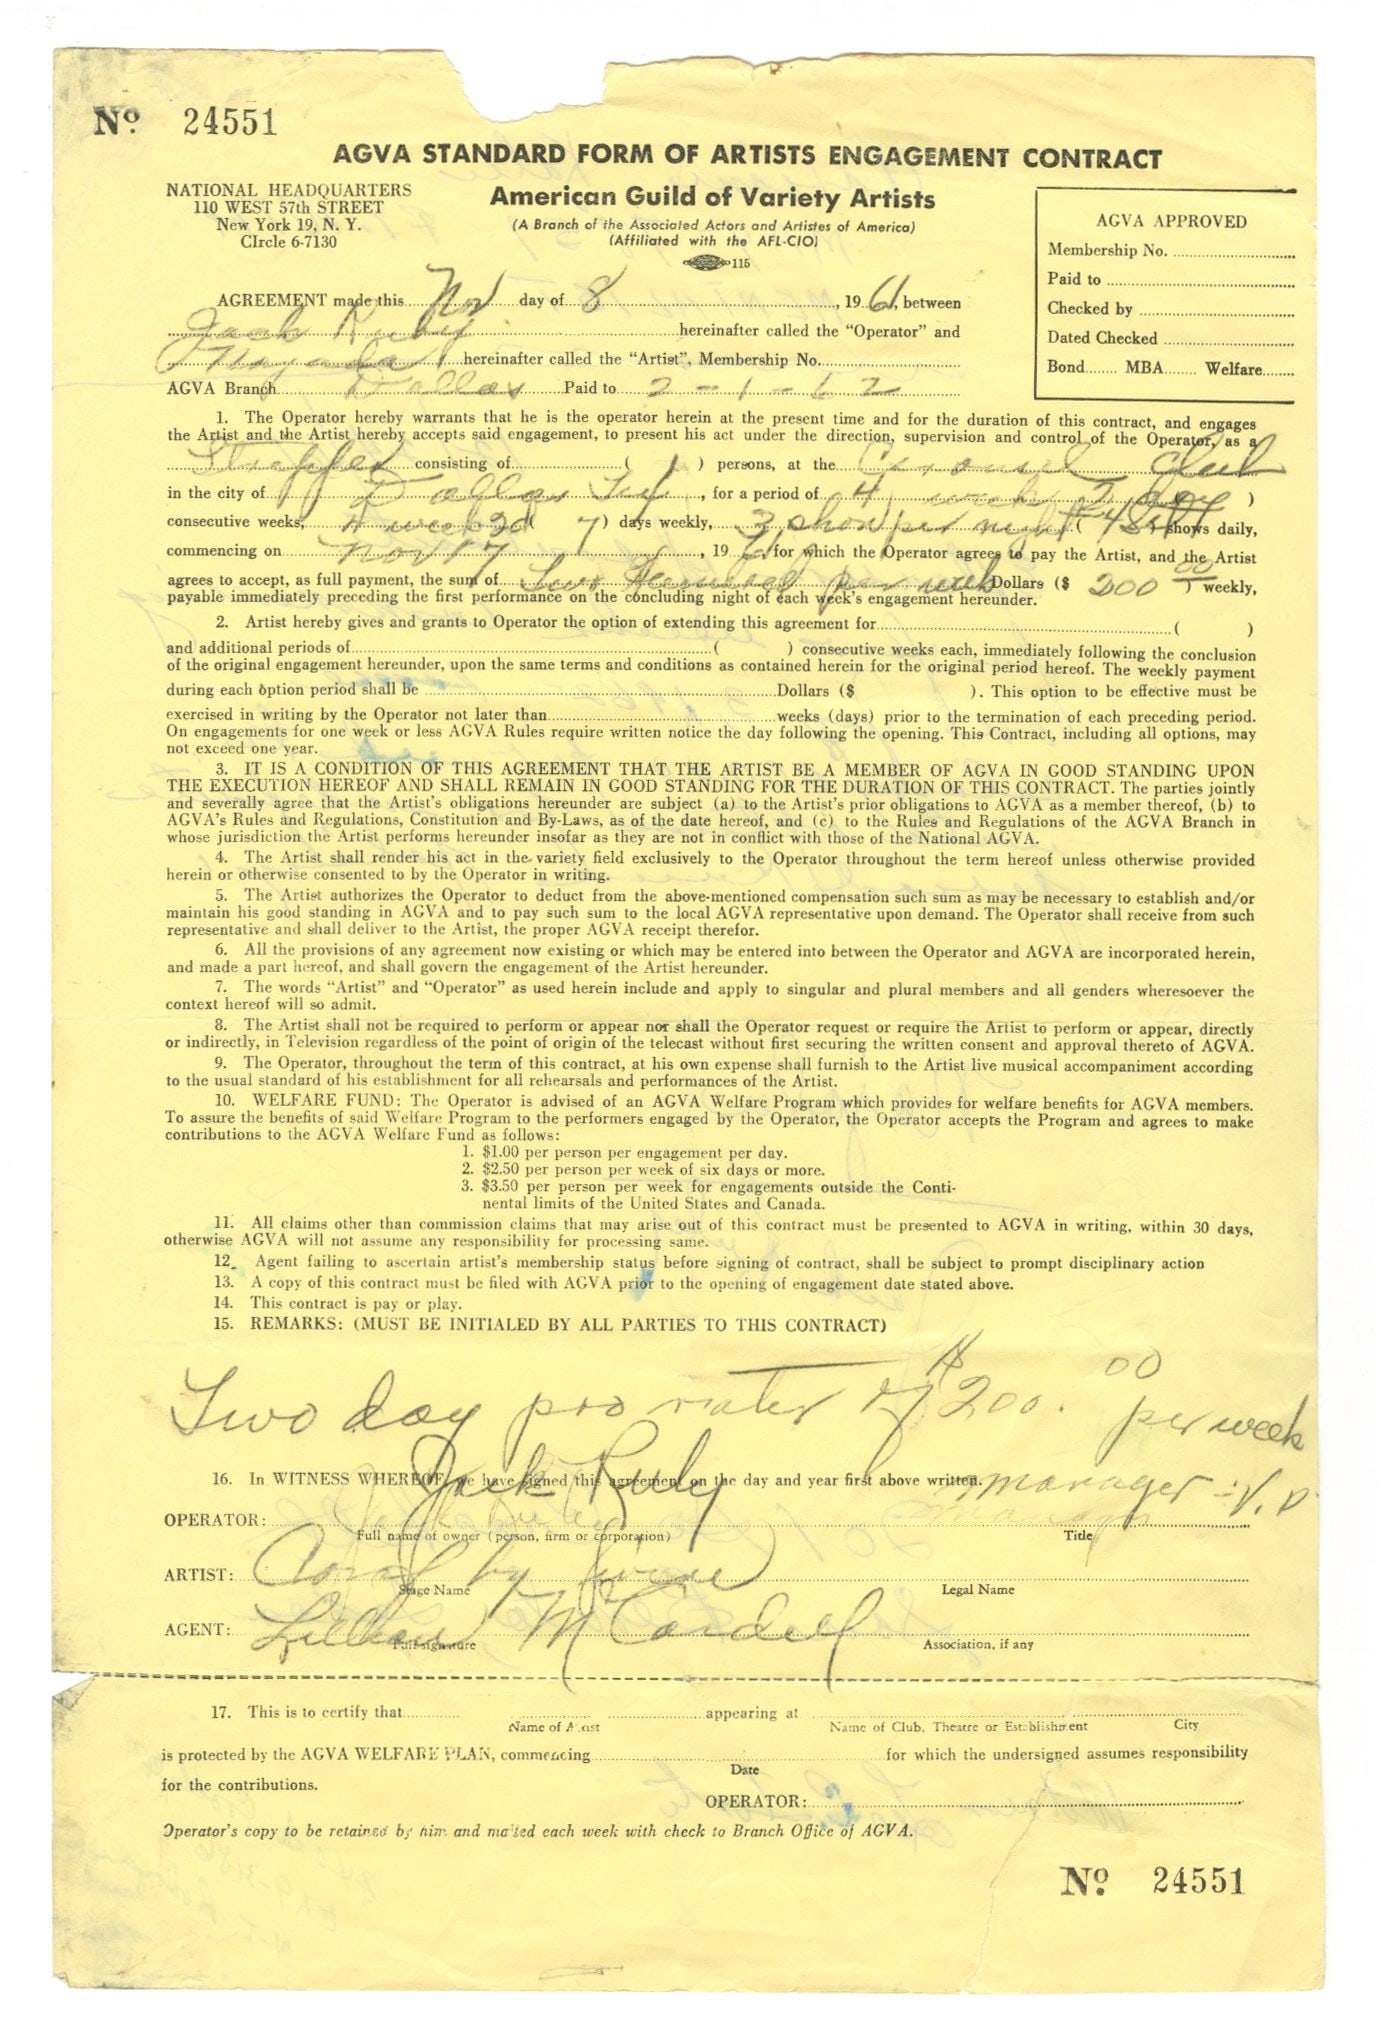 No. 24551
AGVA STANDARD FORM OF ARTISTS ENGAGEMENT CONTRACT
NATIONAL HEADQUARTERS
110 WEST 57th STREET
New York 19, N. Y.
CIrcle 6-7130
American Guild of Variety Artists
(A Branch of the Associated Actors and Artistes of America)
(Affiliated with the AFL-CIO)
115
AGVA APPROVED
Membership No.
Paid to
Checked by
Dated Checked
Bond MBA Welfare
AGREEMENT made this Nov day of 8, 1961, between
Jack Ruby hereinafter called the "Operator" and
hereinafter called the "Artist", Membership No.
AGVA Branch Dallas Paid to 2-1-62
1. The Operator hereby warrants that he is the operator herein at the present time and for the duration of this contract, and engages
the Artist and the Artist hereby accepts said engagement, to present his act under the direction, supervision and control of the Operator, as a
Stripper consisting of ( 1 ) persons, at the Carousel Club
in the city of Dallas Tex, for a period of 4 week 2 day )
consecutive weeks, 4 week 2d ( 7 ) days weekly, 3 show per night ( ) shows daily,
commencing on Nov 17, 1961, for which the Operator agrees to pay the Artist, and the Artist
agrees to accept, as full payment, the sum of Two Hundred per week Dollars ($ 200 00 ) weekly,
payable immediately preceding the first performance on the concluding night of each week's engagement hereunder.
2. Artist hereby gives and grants to Operator the option of extending this agreement for ( )
and additional periods of ( ) consecutive weeks each, immediately following the conclusion
of the original engagement hereunder, upon the same terms and conditions as contained herein for the original period hereof. The weekly payment
during each option period shall be Dollars ($ ). This option to be effective must be
exercised in writing by the Operator not later than weeks (days) prior to the termination of each preceding period.
On engagements for one week or less AGVA Rules require written notice the day following the opening. This Contract, including all options, may
not exceed one year.
3. IT IS A CONDITION OF THIS AGREEMENT THAT THE ARTIST BE A MEMBER OF AGVA IN GOOD STANDING UPON
THE EXECUTION HEREOF AND SHALL REMAIN IN GOOD STANDING FOR THE DURATION OF THIS CONTRACT. The parties jointly
and severally agree that the Artist's obligations hereunder are subject (a) to the Artist's prior obligations to AGVA as a member thereof, (b) to
AGVA's Rules and Regulations, Constitution and By-Laws, as of the date hereof, and (c) to the Rules and Regulations of the AGVA Branch in
whose jurisdiction the Artist performs hereunder insofar as they are not in conflict with those of the National AGVA.
4. The Artist shall render his act in the variety field exclusively to the Operator throughout the term hereof unless otherwise provided
herein or otherwise consented to by the Operator in writing.
5. The Artist authorizes the Operator to deduct from the above-mentioned compensation such sum as may be necessary to establish and/or
maintain his good standing in AGVA and to pay such sum to the local AGVA representative upon demand. The Operator shall receive from such
representative and shall deliver to the Artist, the proper AGVA receipt therefor.
6. All the provisions of any agreement now existing or which may be entered into between the Operator and AGVA are incorporated herein,
and made a part hereof, and shall govern the engagement of the Artist hereunder.
7. The words "Artist" and "Operator" as used herein include and apply to singular and plural members and all genders wheresoever the
context hereof will so admit.
8. The Artist shall not be required to perform or appear nor shall the Operator request or require the Artist to perform or appear, directly
or indirectly, in Television regardless of the point of origin of the telecast without first securing the written consent and approval thereto of AGVA.
9. The Operator, throughout the term of this contract, at his own expense shall furnish to the Artist live musical accompaniment according
to the usual standard of his establishment for all rehearsals and performances of the Artist.
10. WELFARE FUND: The Operator is advised of an AGVA Welfare Program which provides for welfare benefits for AGVA members.
To assure the benefits of said Welfare Program to the performers engaged by the Operator, the Operator accepts the Program and agrees to make
contributions to the AGVA Welfare Fund as follows:
1. $1.00 per person per engagement per day.
2. $2.50 per person per week of six days or more.
3. $3.50 per person per week for engagements outside the Conti-
nental limits of the United States and Canada.
11. All claims other than commission claims that may arise out of this contract must be presented to AGVA in writing, within 30 days,
otherwise AGVA will not assume any responsibility for processing same.
12. Agent failing to ascertain artist's membership status before signing of contract, shall be subject to prompt disciplinary action
13. A copy of this contract must be filed with AGVA prior to the opening of engagement date stated above.
14. This contract is pay or play.
15. REMARKS: (MUST BE INITIALED BY ALL PARTIES TO THIS CONTRACT)
Two day pro rater of $200.00 per week
16. In WITNESS WHEREOF, we have signed this agreement on the day and year first above written.
OPERATOR: Jack Ruby manager - V. P
Full name of owner (person, firm or corporation) Title
ARTIST:
Stage Name Legal Name
AGENT: Lillian McCardell
Full signature Association, if any
17. This is to certify that appearing at
Name of Artist Name of Club, Theatre or Establishment City
is protected by the AGVA WELFARE PLAN, commencing for which the undersigned assumes responsibility
Date
for the contributions.
OPERATOR:
Operator's copy to be retained by him and mailed each week with check to Branch Office of AGVA.
No. 24551